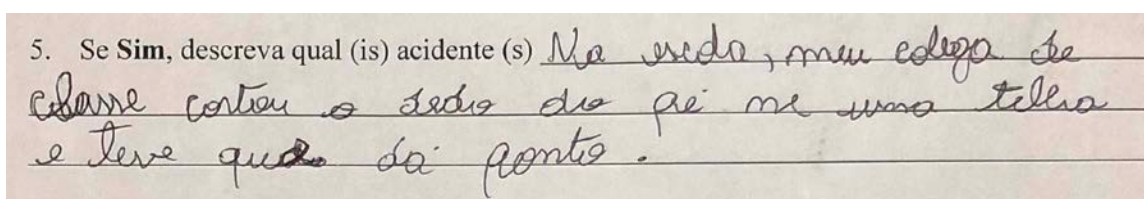 5. Se Sim, descreva qual (is) acidente (s) Na escola, meu colega de
classe cortou o dedo do pé me uma telha
e teve que da ponto.